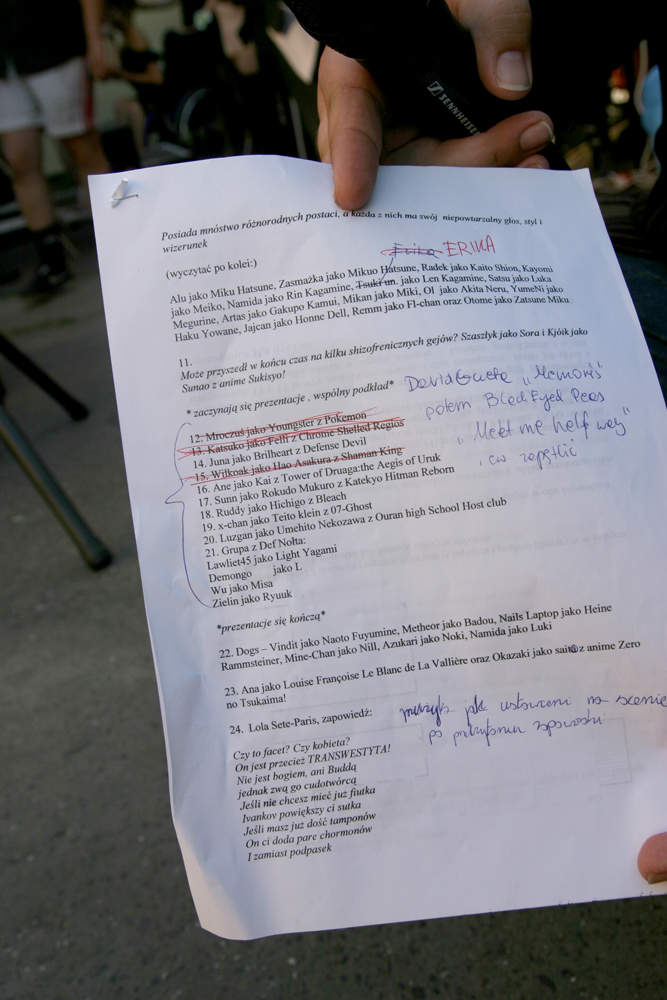 SENNHEISER
Posiada mnóstwo różnorodnych postaci, a każda z nich ma swój niepowtarzalny głos, styl i
wizerunek
Erika ERIKA
(wyczytać po kolei:)
Alu jako Miku Hatsune, Zasmażka jako Mikuo Hatsune, Radek jako Kaito Shion, Kayomi
jako Meiko, Namida jako Rin Kagamine, Tsuki un. jako Len Kagamine, Satsu jako Luka
Megurine, Artas jako Gakupo Kamui, Mikan jako Miki, Ol jako Akita Neru, YumeNi jako
Haku Yowane, Jajcan jako Honne Dell, Remm jako Fl-chan oraz Otome jako Zatsune Miku
11.
Może przyszedł w końcu czas na kilku shizofrenicznych gejów? Szaszłyk jako Sora i Kjóik jako
Sunao z anime Sukisyo!
* zaczynają się prezentacje , wspólny podkład*
David Guetta "Memories"
potem Black Eyed Peas
"Meet me half way"
12. Mroczuś jako Youngster z Pokemon
13. Katsuko jako Felli z Chrome Shelled Regios
14. Juna jako Brilheart z Defense Devil
15. Wilkoak jako Hao Asakura z Shaman King
16. Ane jako Kai z Tower of Druaga:the Aegis of Uruk
17. Sunn jako Rokudo Mukuro z Katekyo Hitman Reborn
18. Ruddy jako Hichigo z Bleach
19. x-chan jako Teito klein z 07-Ghost
20. Luzgan jako Umehito Nekozawa z Ouran high School Host club
21. Grupa z Def Nołta:
Lawliet45 jako Light Yagami
Demongo jako L
Wu jako Misa
Zielin jako Ryuuk
*prezentacje się kończą*
22. Dogs – Vindit jako Naoto Fuyumine, Metheor jako Badou, Nails Laptop jako Heine
Rammsteiner, Mine-Chan jako Nill, Azukari jako Noki, Namida jako Luki
23. Ana jako Louise Françoise Le Blanc de La Vallière oraz Okazaki jako saito z anime Zero
no Tsukaima!
24. Lola Sete-Paris, zapowiedź:
muzyka jak ustawieni na scenie
po zapowiedzi
Czy to facet? Czy kobieta?
On jest przecież TRANSWESTYTA!
Nie jest bogiem, ani Buddą
jednak zwą go cudotwórcą
Jeśli nie chcesz mieć już fiutka
Ivankov powiększy ci sutka
Jeśli masz już dość tamponów
On ci doda pare chormonów
I zamiast podpasek